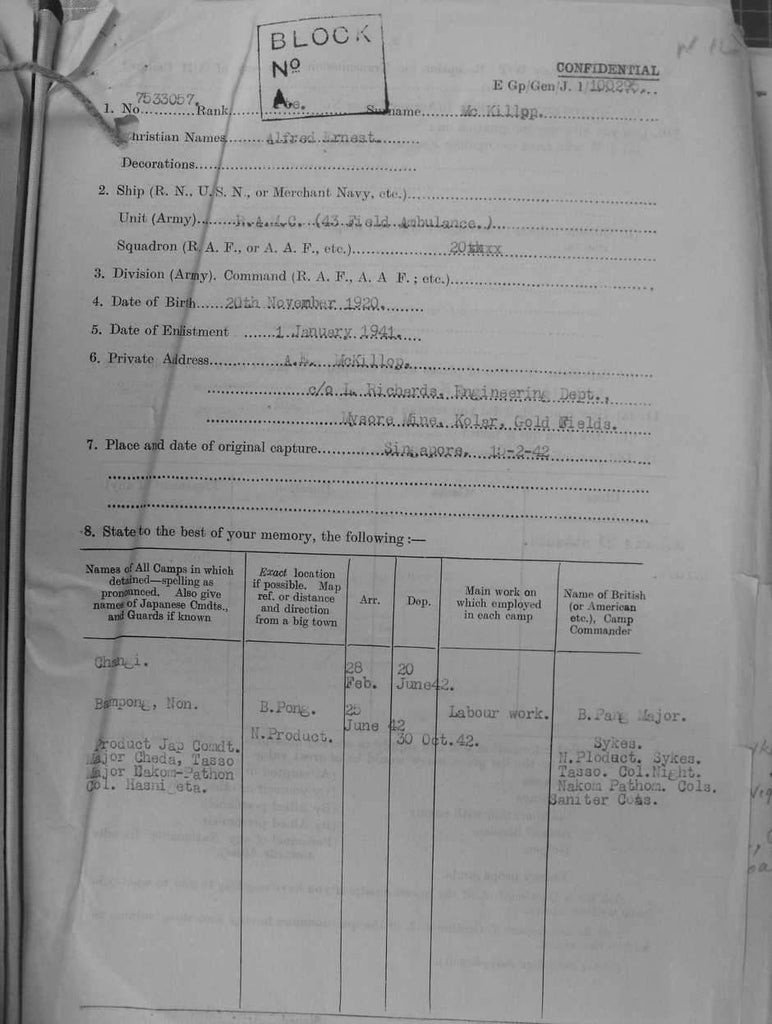 BLOCK
Nº
A
CONFIDENTIAL
E Gp/Gen/J. 1/10029...
1. No. 7533057. Rank Surname Mc Killop.
Christian Names Alfred Ernest.
Decorations
2. Ship (R. N., U. S. N., or Merchant Navy, etc.)
Unit (Army) (43 Field Ambulance.)
Squadron (R. A. F., or A. A. F., etc.)
3. Division (Army). Command (R. A. F., A. A F. ; etc.)
4. Date of Birth 20th November 1920.
5. Date of Enlistment 1 January 1941.
6. Private Address McKillop.
c/o L. Richards, Engineering Dept.,
Mysore Mine, Kolar, Gold Fields.
7. Place and date of original capture Singapore, -2-42
8. State to the best of your memory, the following :—
Names of All Camps in which detained—spelling as pronounced. Also give names of Japanese Cmdts., and Guards if known
Exact location if possible. Map ref. or distance and direction from a big town
Arr.
Dep.
Main work on which employed in each camp
Name of British (or American etc.), Camp Commander
Changi. 28 Feb. 20 June42.
Bampong, Non. B.Pong. 25 June 42 Labour work. B.Pang Major.
N.Product. 30 Oct.42. Sykes.
Product Jap Comdt. N.Ploduct. Sykes.
Major Cheda, Tasso Tasso. Col.Night.
Major Nakom-Pathon Nakom Pathom. Cols.
Col. Saniter Coas.